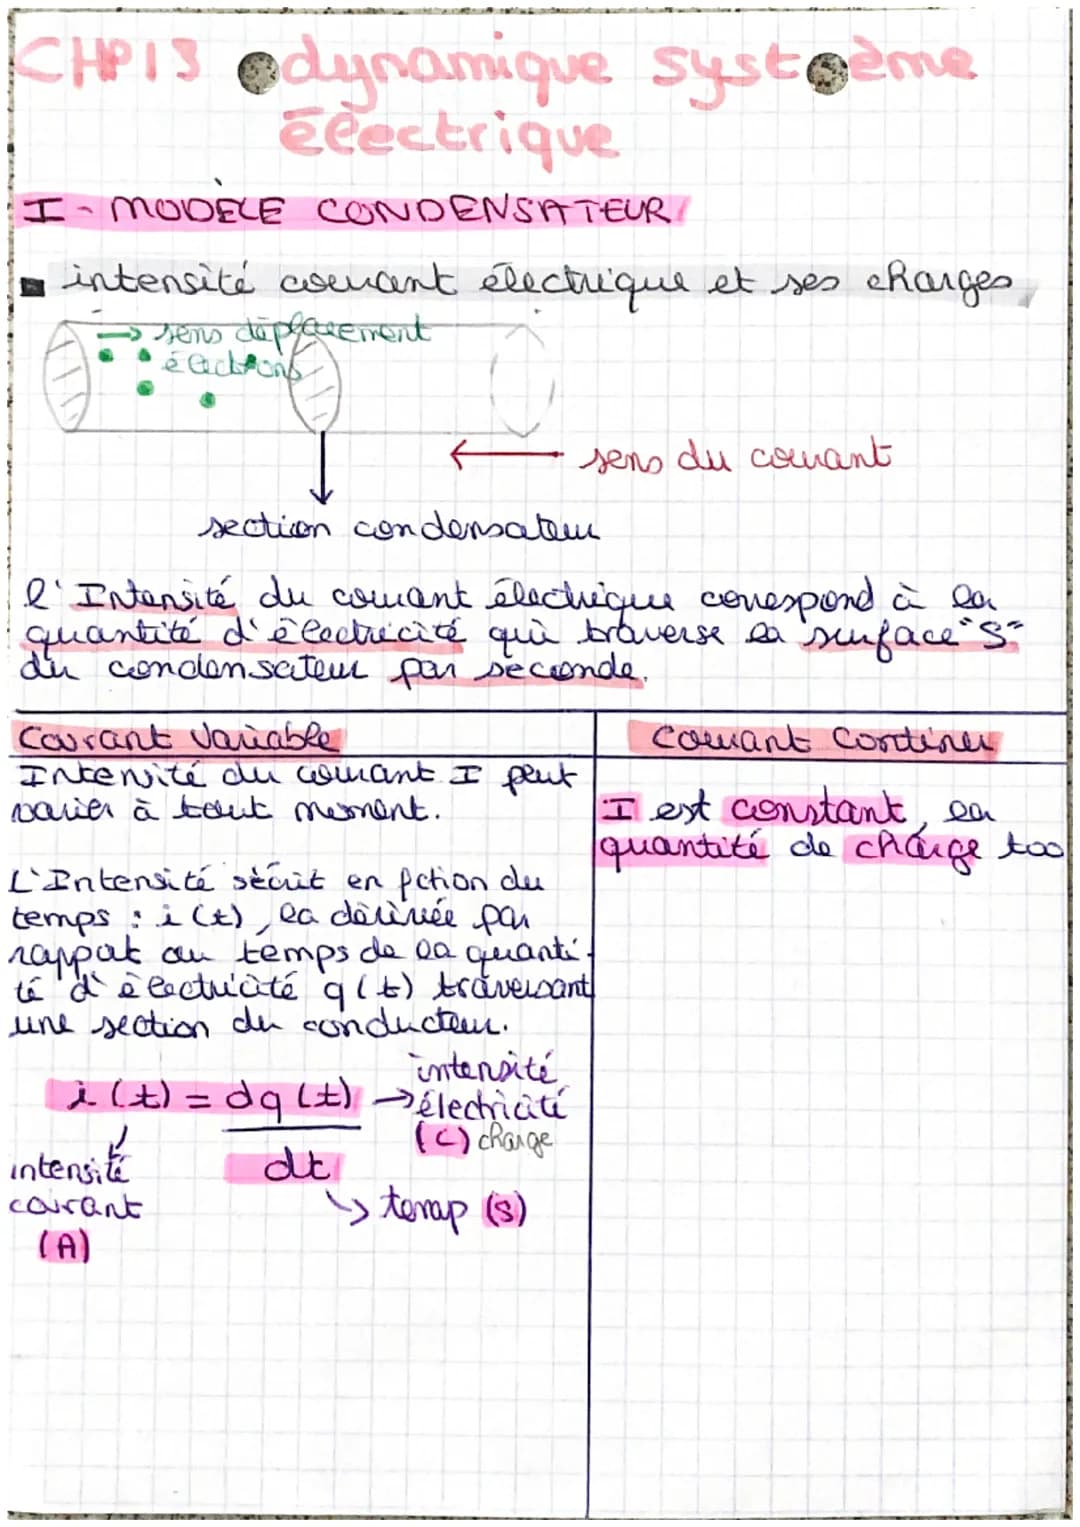 CHP13 dynamique système
électrique
I - MODÈLE CONDENSATEUR
intensité courant électrique et ses charges
→ sens déplacement
électrons
← sens du courant
section condensateur
l'Intensité du courant électrique correspond à la
quantité d'électricité qui traverse la surface "S"
du condensateur par seconde.
Courant Variable
Intensité du courant I peut
varier à tout moment.
L'Intensité sécrit en fction du
temps : i(t), la dérivée par
rappot au temps de la quanti-
té d'électricité q(t) traversant
une section du conducteur.
i(t) = dq(t) → intensité
électricité
(C) charge
dt
intensité
courant
(A)
↳ temp (s)
Courant Continu
I est constant, la
quantité de charge too